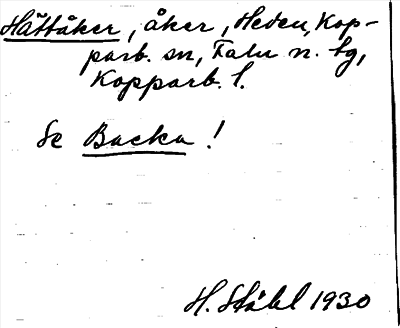 Hättåker, åker, Heden, Kop-
parb. sn, Falu n. tg,
Kopparb. l.
Se Backa!
H. Ståhl 1930